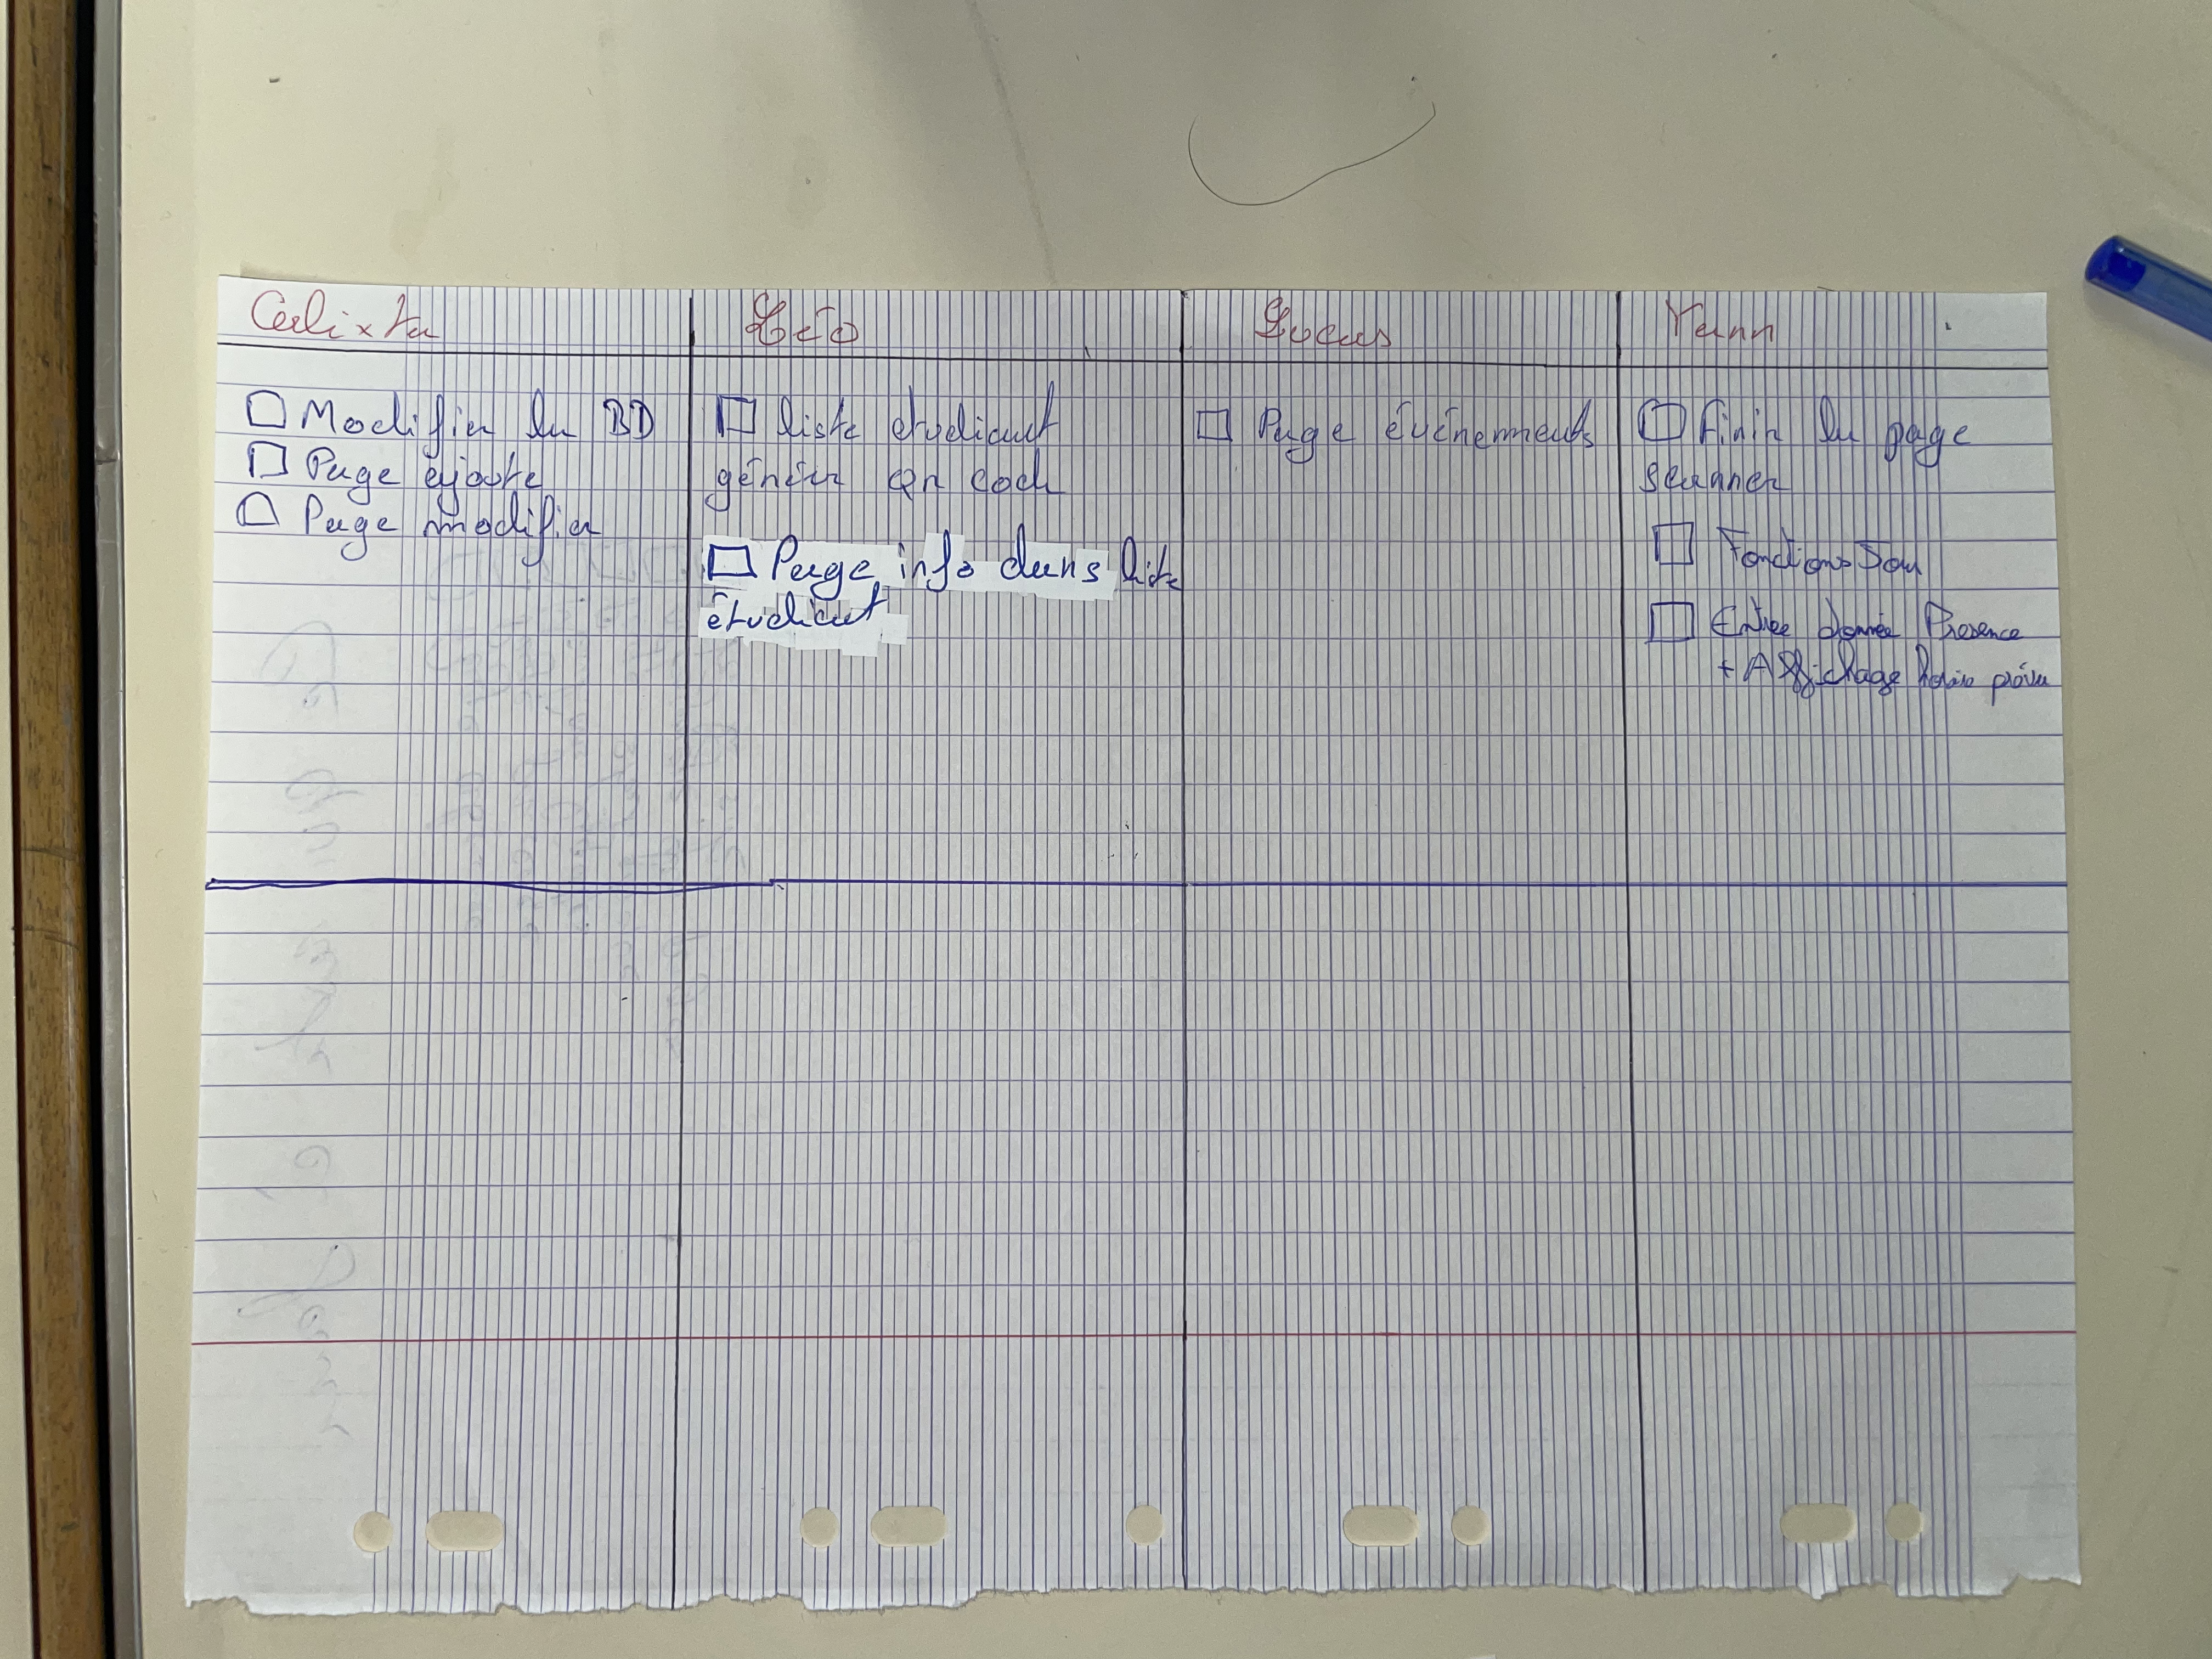 Calixta
Léo
Lucas
Yann
Modifier la BD
Page ajoute
Page modifier
liste etudiant
générer Qr code
Page info dans liste
étudiant
Page événements
Finir la page
scanner
Fonctions Son
Entrée donnée Presence
+ Affichage horaire prévu